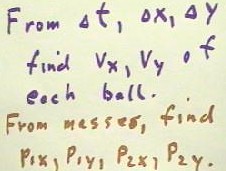 From Δt, Δx, Δy
find Vx, Vy of
each ball.
From masses, find
P1x, P1y, P2x, P2y.